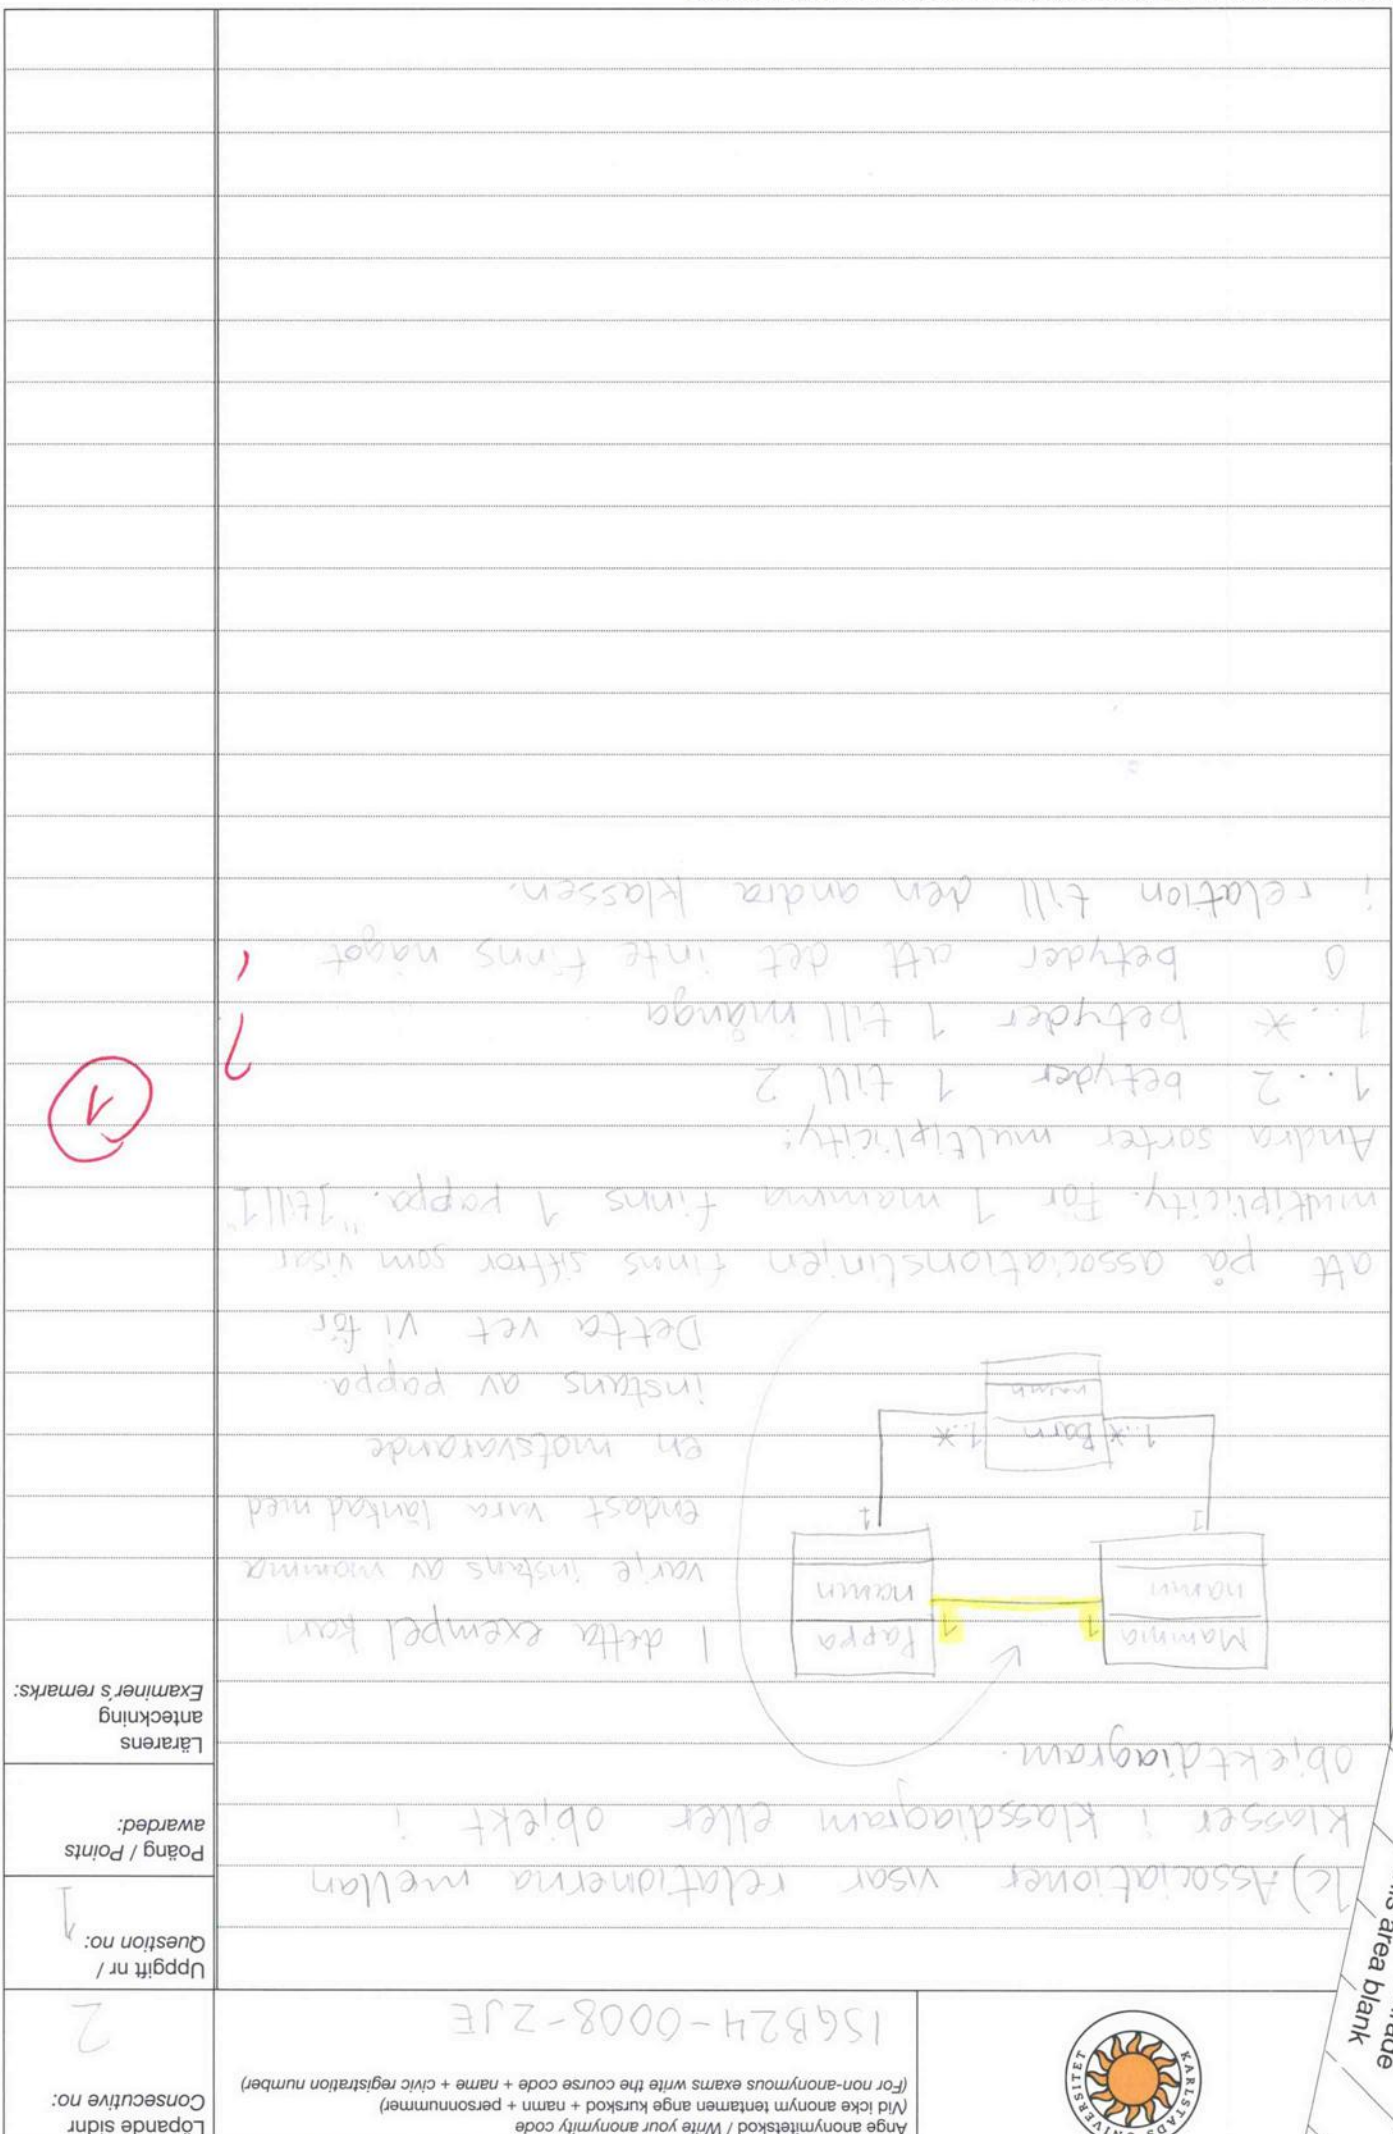 rade
his area blank
KARLSTADS UNIVERSITET
Ange anonymitetskod / Write your anonymity code
(Vid icke anonym tentamen ange kurskod + namn + personnummer)
(For non-anonymous exams write the course code + name + civic registration number)
ISGB24-0008-ZJE
Löpande sidnr
Consecutive no:
2
Uppgift nr /
Question no:
1
Poäng / Points
awarded:
Lärarens
anteckning
Examiner's remarks:
1c) Associationer visar relationerna mellan
klasser i klassdiagram eller objekt i
objektdiagram.
Mamma
namn
1
1
Pappa
namn
1
1
1..* Barn 1..*
namn
I detta exempel kan
varje instans av mamma
endast vara länkad med
en motsvarande
instans av pappa.
Detta vet vi för
att på associationslinjen finns siffror som visar
multiplicity. För 1 mamma finns 1 pappa. "1 till 1"
Andra sorter multiplicity:
1..2 betyder 1 till 2
1..* betyder 1 till många
0 betyder att det inte finns något
i relation till den andra klassen.
?
1